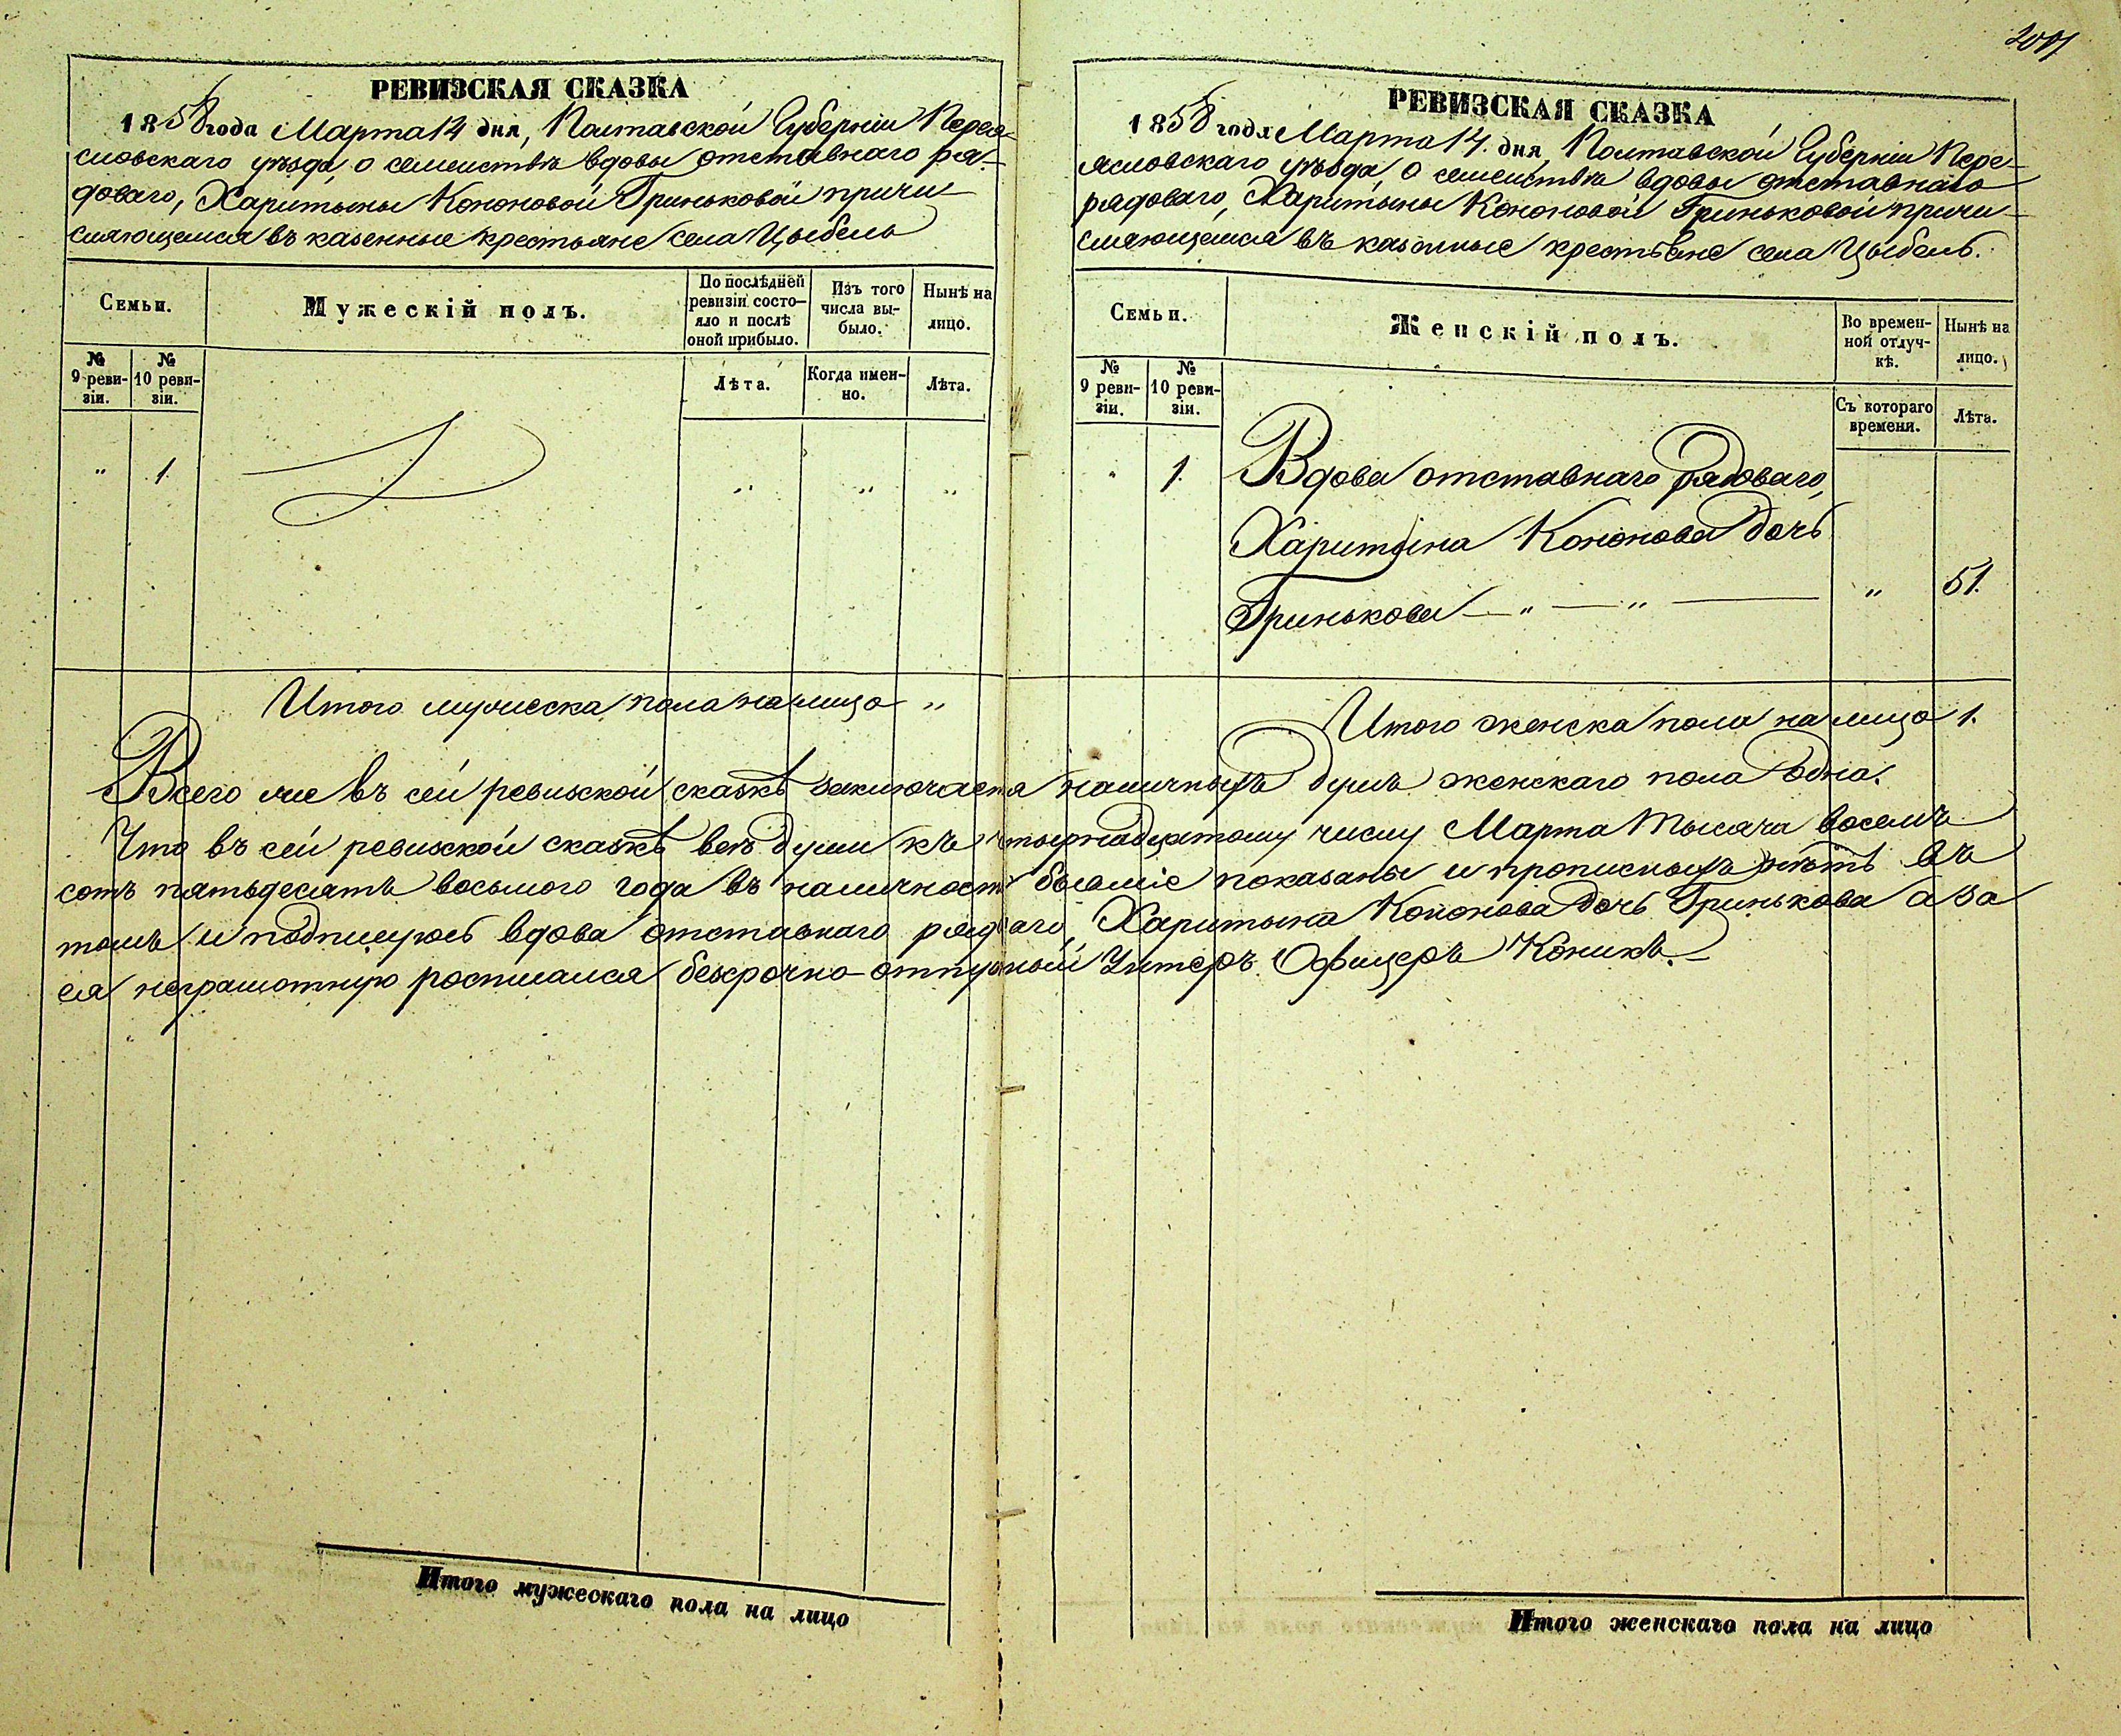 РЕВИЗСКАЯ СКАЗКА
1858 года Марта 14 дня, Полтавской Губерніи Перея-
словскаго уѣзда, о семействѣ вдовы отставнаго ря-
доваго, Харитыны Кононовой Гриньковой причи-
сляющемся въ казенные крестьяне села Цыбель
Семьи.
Мужескій полъ.
По послѣдней ревизіи состо-
яло и послѣ оной прибыло.
Изъ того числа вы-
было.
Нынѣ на лицо.
№ 9 реви-
зіи.
№ 10 реви-
зіи.
Лѣта.
Когда имен-
но.
Лѣта.
" 1. " " "
Итого мужеска пола на лицо "
РЕВИЗСКАЯ СКАЗКА
1858 года Марта 14. дня, Полтавской Губерніи Пере-
ясловскаго уѣзда о семействѣ вдовы отставнаго
рядоваго, Харитыны Кононовой Гриньковой причи-
сляющемся въ казенные крестьяне села Цыбель.
Семьи.
Женскій полъ.
Во времен-
ной отлуч-
кѣ.
Нынѣ на лицо.
№ 9 реви-
зіи.
№ 10 реви-
зіи.
Съ котораго времени.
Лѣта.
" 1. Вдова отставнаго рядоваго,
Харитына Кононова дочь
Гринькова — " — " — " 51.
Итого женска пола на лицо 1.
Всего же въ сей ревизской сказкѣ заключается наличныхъ душъ женскаго пола одна.
Что въ сей ревизской сказкѣ всѣ души къ четырнадцатому числу Марта тысяча восемь
сотъ пятьдесятъ восьмого года въ наличности бывшіе показаны и прописныхъ нѣтъ въ
томъ и подписуюсь вдова отставнаго рядоваго, Харитына Кононова дочь Гринькова а за
ея неграмотную росписался безсрочно-отпускный Унтеръ Офицеръ Коникъ.
Итого мужескаго пола на лицо
Итого женскаго пола на лицо